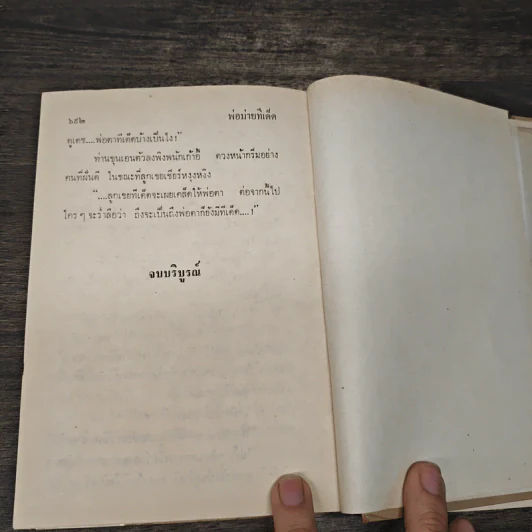 ๖๙๒ พ่อม่ายทีเด็ด
ดูเดช....พ่อตาทีเด็ดบ้างเป็นไง!"
ท่านขุนเอนตัวลงพิงพนักเก้าอี้ ดวงหน้ากริ่มอย่าง
คนที่ฝันดี ในขณะที่ลูกเขยเชียร์หงุงหงิง
"....ลูกเขยทีเด็ดจะเผยเคล็ดให้พ่อตา ต่อจากนี้ไป
ใคร ๆ จะร่ำลือว่า ถึงจะเป็นถึงพ่อตาก็ยังมีทีเด็ด....!"
จบบริบูรณ์